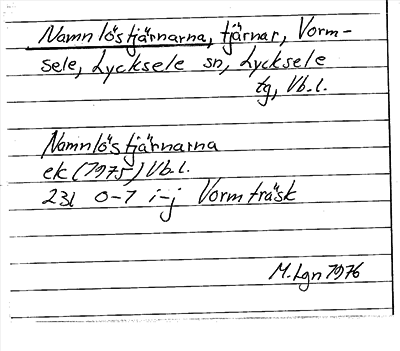 Namnlöstjärnarna, tjärnar, Vorm-
sele, Lycksele sn, Lycksele
tg, Vb.l.
Namnlöstjärnarna
ek (1975) Vb.l.
23I 0-1 i-j Vormträsk
M. Lgn 1976